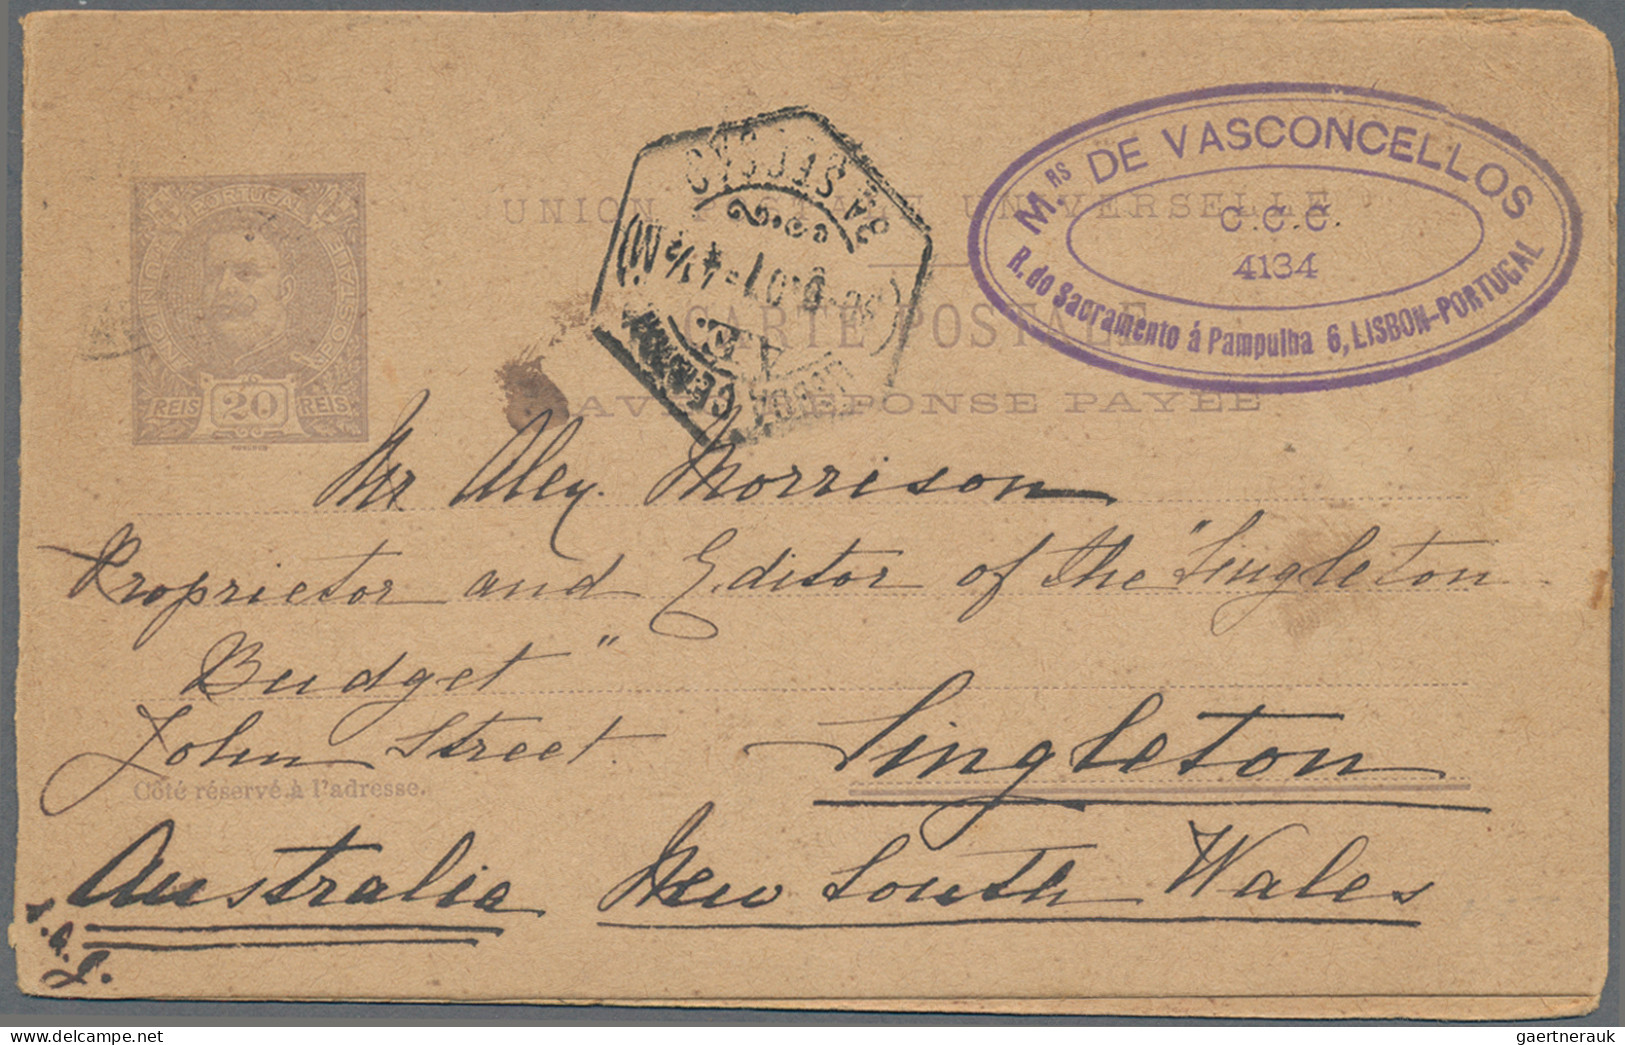 PORTUGAL
MONDON MOUCHON
REIS 20 REIS
UNION POSTALE UNIVERSELLE
CARTE POSTALE
AVEC RÉPONSE PAYÉE
2ª SECÇÃO
CENTRAL
LISBOA
MRS DE VASCONCELLOS
C.C.C.
4134
R. do Sacramento á Pampulha 6, LISBON-PORTUGAL
Mr Alex. Morrison
Proprietor and Editor of the "Singleton
Budget"
John Street. Singleton
Côté réservé à l'adresse.
Australia New South Wales
gaertnerauk